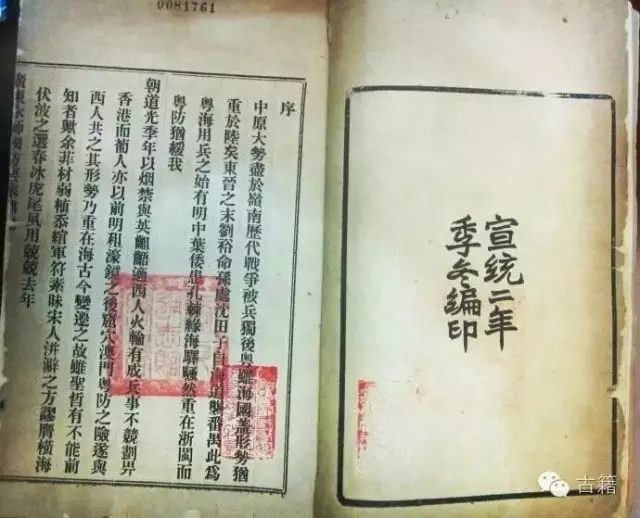 0081761
宣統二年
季冬編印
序
中原大勢盡於嶺南歷代戰爭被兵獨後粵雖海國蓋形勢猶
重於陸矣東晉之末劉裕命孫處沈田子自海道襲番禺此爲
粵海用兵之始有明中葉倭患孔棘緣海驛騷然重在浙閩而
粵防猶緩我
朝道光季年以烟禁與英齟齬適西人火輪有成兵事不競劃畀
香港而葡人亦以前明租濠鏡之後窟穴澳門粵防之險遂與
西人共之其形勢乃重在海古今變遷之故雖聖哲有不能前
知者贓余菲材弱植忝綰軍符素昧宋人洴澼之方謬膺橫海
伏波之選春冰虎尾夙用兢兢去年
古籍